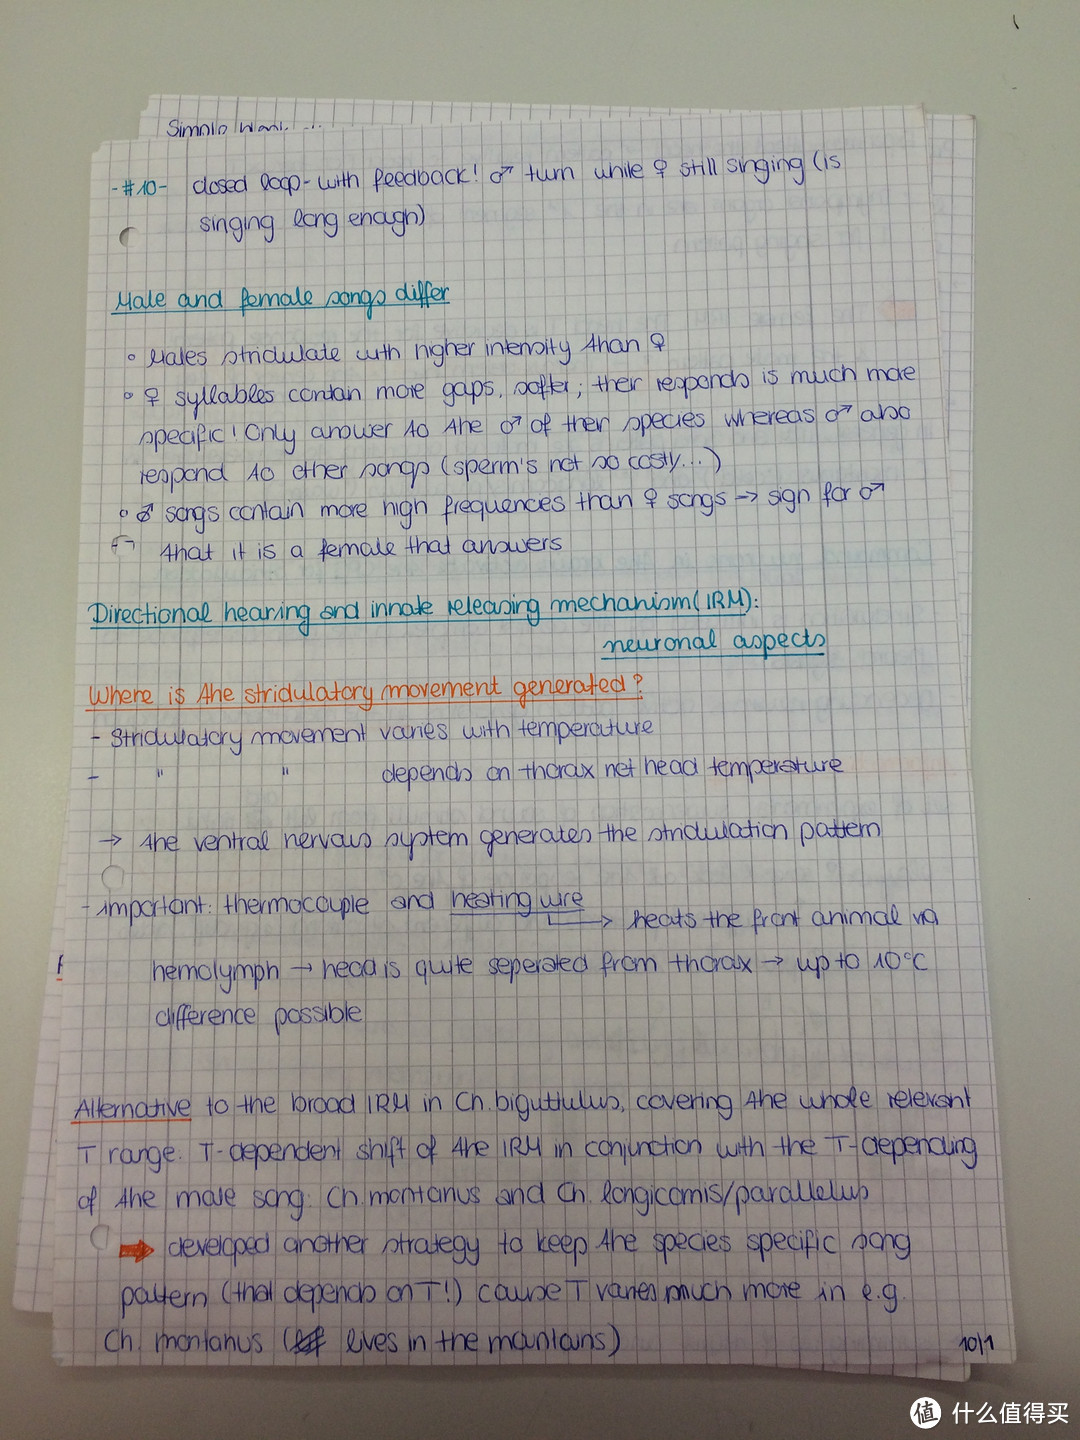 -#10- closed loop - with feedback! ♂ turn while ♀ still singing (is
singing long enough)
Male and female songs differ
◦ Males stridulate with higher intensity than ♀
◦ ♀ syllables contain more gaps, softer; their responds is much more
specific! Only answer to the ♂ of their species whereas ♂ also
respond to other songs (sperm's not so costly...)
◦ ♂ songs contain more high frequences than ♀ songs → sign for ♂
that it is a female that answers
Directional hearing and innate releasing mechanism (IRM):
neuronal aspects
Where is the stridulatory movement generated?
- Stridulatory movement varies with temperature
- " " depends on thorax not head temperature
→ the ventral nervous system generates the stridulation pattern
- important: thermocouple and heating wire
→ heats the front animal via
hemolymph → head is quite seperated from thorax → up to 10°C
difference possible
Alternative to the broad IRM in Ch. biguttulus, covering the whole relevant
T range. T-dependent shift of the IRM in conjunction with the T-depending
of the male song: Ch. montanus and Ch. longicornis/parallelus
➡ developed another strategy to keep the species specific song
pattern (that depends on T!) cause T varies much more in e.g.
Ch. montanus (lives in the mountains)
10/1
值 什么值得买